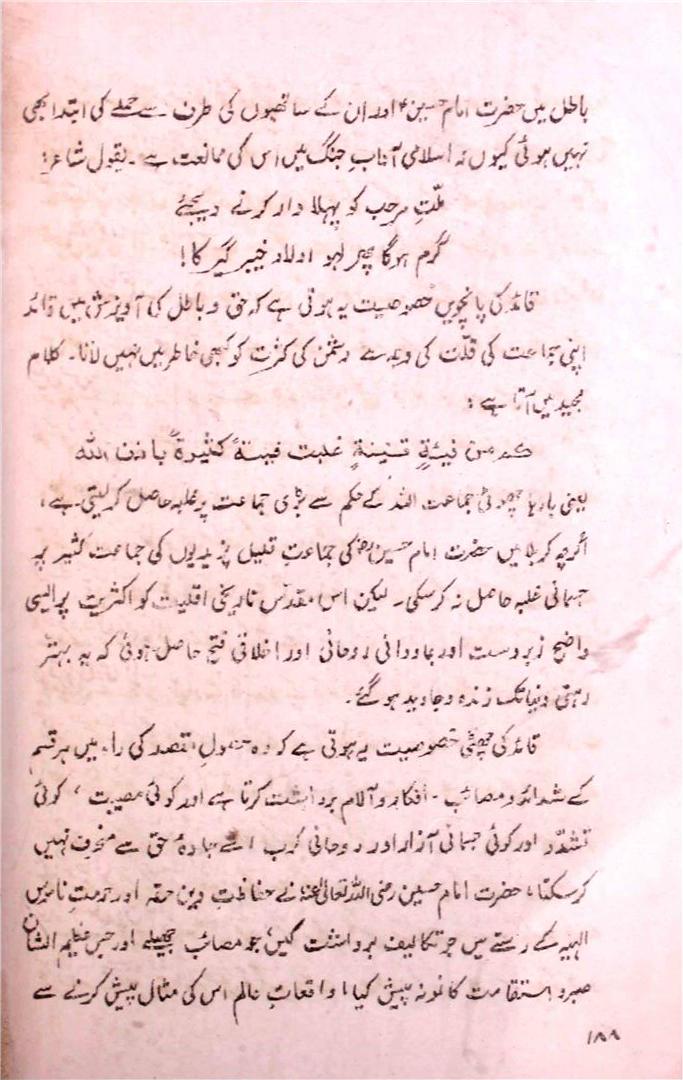 باطل میں حضرت امام حسینؑ اور ان کے ساتھیوں کی طرف سے حملے کی ابتدا بھی
نہیں ہوئی کیوں کہ اسلامی آداب جنگ میں اس کی ممانعت ہے۔ بقول شاعر:
ملّتِ مرحب کو پہلا وار کرنے دیجئے
گرم ہوگا پھر لہو اولاد خیبر گیر کا!
قائد کی پانچویں خصوصیت یہ ہوتی ہے کہ حق و باطل کی آویزش میں قائد
اپنی جماعت کی قلّت کی وجہ سے دشمن کی کثرت کو کبھی خاطر میں نہیں لاتا۔ کلام
مجید میں آتا ہے:
کم من فئۃٍ قلیلۃٍ غلبت فئۃً کثیرۃً باذن اللہ
یعنی بارہا چھوٹی جماعت اللہ کے حکم سے بڑی جماعت پر غلبہ حاصل کر لیتی ہے،
اگرچہ کربلا میں حضرت امام حسینؓ کی جماعتِ قلیل یزیدیوں کی جماعت کثیر پہ
جسمانی غلبہ حاصل نہ کر سکی۔ لیکن اس مقدس تاریخی اقلیت کو اکثریت پر ایسی
واضح زبردست اور جاودانی روحانی اور اخلاقی فتح حاصل ہوئی کہ یہ بہتر
رہتی دنیا تک زندہ و جاوید ہو گئے۔
قائد کی چھٹی خصوصیت یہ ہوتی ہے کہ وہ حصولِ مقصد کی راہ میں ہر قسم
کے شدائد و مصائب۔ افکار و آلام برداشت کرتا ہے اور کوئی مصیبت، کوئی
تشدّد اور کوئی جسمانی آزار اور روحانی کرب اسے جادۂ حق سے منحرف نہیں
کر سکتا، حضرت امام حسین رضی اللہ تعالیٰ عنہ نے حفاظتِ دین حقہ اور حرمتِ ناموس
الہیہ کے رستے میں جو تکالیف برداشت کیں، جو مصائب جھیلے اور جس عظیم الشان
صبر و استقامت کا نمونہ پیش کیا، واقعاتِ عالم اس کی مثال پیش کرنے سے
۱۸۸